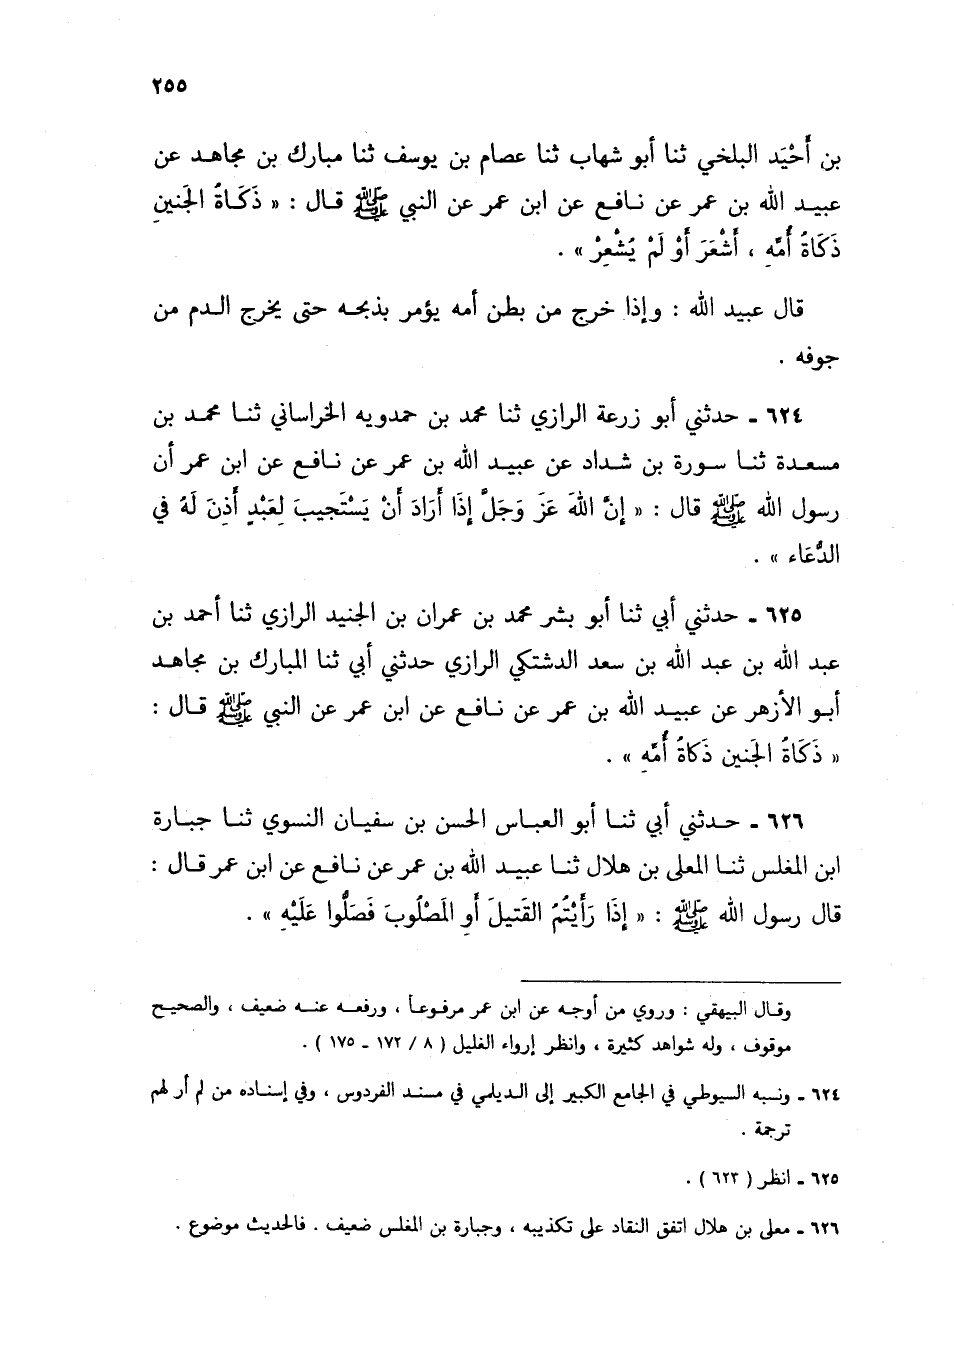 ٢٥٥
بن أَحْيَد البلخي ثنا أبو شهاب ثنا عصام بن يوسف ثنا مبارك بن مجاهد عن
عبيد الله بن عمر عن نافع عن ابن عمر عن النبي ﷺ قال : « ذَكَاةُ الجَنينِ
ذَكَاةُ أُمِّهِ ، أَشْعَرَ أَوْ لَمْ يُشْعِرْ » .
قال عبيد الله : وإذا خرج من بطن أمه يؤمر بذبحه حتى يخرج الدم من
جوفه .
٦٢٤ ـ حدثني أبو زرعة الرازي ثنا محمد بن حمدويه الخراساني ثنا محمد بن
مسعدة ثنا سورة بن شداد عن عبيد الله بن عمر عن نافع عن ابن عمر أن
رسول الله ﷺ قال : « إِنَّ اللهَ عَزَّ وَجَلَّ إِذَا أَرَادَ أَنْ يَسْتَجِيبَ لِعَبْدٍ أَذِنَ لَهُ في
الدُّعَاء » .
٦٢٥ ـ حدثني أبي ثنا أبو بشر محمد بن عمران بن الجنيد الرازي ثنا أحمد بن
عبد الله بن عبد الله بن سعد الدشتكي الرازي حدثني أبي ثنا المبارك بن مجاهد
أبو الأزهر عن عبيد الله بن عمر عن نافع عن ابن عمر عن النبي ﷺ قال :
« ذَكَاةُ الجَنينِ ذَكاةُ أُمِّهِ » .
٦٢٦ ـ حدثني أبي ثنا أبو العباس الحسن بن سفيان النسوي ثنا جبارة
ابن المغلس ثنا المعلى بن هلال ثنا عبيد الله بن عمر عن نافع عن ابن عمر قال :
قال رسول الله ﷺ : « إِذَا رَأَيْتُمُ القَتيلَ أَوِ المَصْلُوبَ فَصَلُّوا عَلَيْهِ » .
وقال البيهقي : وروي من أوجه عن ابن عمر مرفوعاً ، ورفعه عنه ضعيف ، والصحيح
موقوف ، وله شواهد كثيرة ، وانظر إرواء الغليل ( ٨ / ١٧٢ ـ ١٧٥ ) .
٦٢٤ ـ ونسبه السيوطي في الجامع الكبير إلى الديلمي في مسند الفردوس ، وفي إسناده من لم أر لهم
ترجمة .
٦٢٥ ـ انظر ( ٦٢٣ ) .
٦٢٦ ـ معلى بن هلال اتفق النقاد على تكذيبه ، وجبارة بن المغلس ضعيف . فالحديث موضوع .